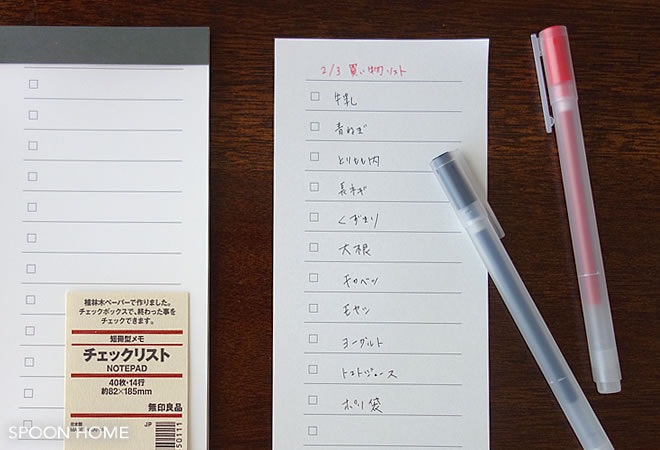 2/3 買い物リスト
牛乳
青ねぎ
とりもも肉
長ネギ
くずきり
大根
キャベツ
モヤシ
ヨーグルト
トマトジュース
ポリ袋
植林木ペーパーで作りました。
チェックボックスで、終わった事を
チェックできます。
短冊型メモ
チェックリスト
NOTEPAD
40枚・14行
約82×185mm
無印良品
日本製 JP
50111
SPOON HOME